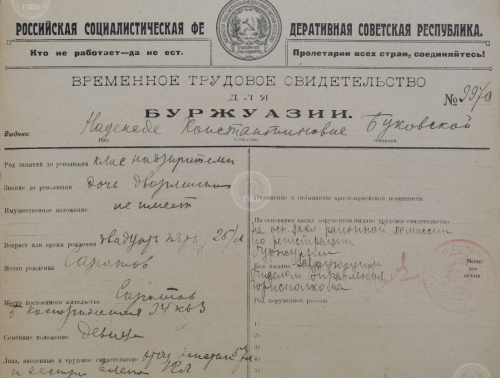 РОССИЙСКАЯ СОЦИАЛИСТИЧЕСКАЯ ФЕ ДЕРАТИВНАЯ СОВЕТСКАЯ РЕСПУБЛИКА.
Кто не работает—да не ест.
Пролетарии всех стран, соединяйтесь!
ВРЕМЕННОЕ ТРУДОВОЕ СВИДЕТЕЛЬСТВО
ДЛЯ
БУРЖУАЗИИ.
№
Выдана: Надежде Константиновне Буковской
Имя Отчество Фамилия
Род занятий до революции клас надзиратель
Звание до революции дочь дворянина
Имущественное положение не имеет
Возраст или время рождения двадцать пять, 25 л
Место рождения Саратов
Место постоянного жительства Саратов
Б Кострижная 34 кв 3
Семейное положение девица
Лица, внесенные в трудовое свидетельство
и сестра Елена
Отношение к отбыванию красноармейской повинности
На основании каких документов выдано трудовое свидетельство
на осн. районной комиссии
по регистрации
буржуазии
Кем выдано заведующим
Отделом Управления
Горисполкома
Место для печати.
Род порученной работы
1.
2.
3.
4.
5.